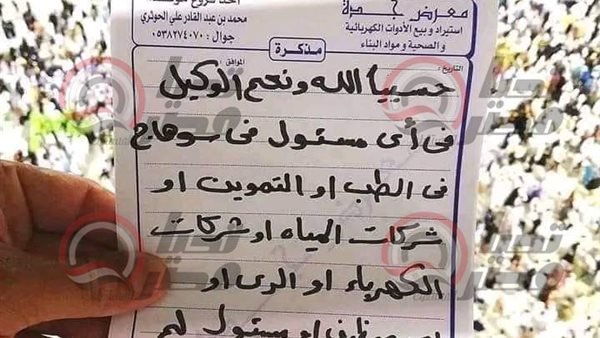 معرض جدة
استيراد و بيع الأدوات الكهربائية
والصحية و مواد البناء
محمد بن عبد القادر علي الحوثري
جوال : ٠٥٣٨٢٧٤٠٧٠
مذكرة
التاريخ :
الموافق
حسبيا الله ونعم الوكيل
فى أى مسئول فى سوهاج
فى الطب او التموين او
شركات المياه او شركات
الكهرباء او الرى او
او مسئول لم
تحيا مصر